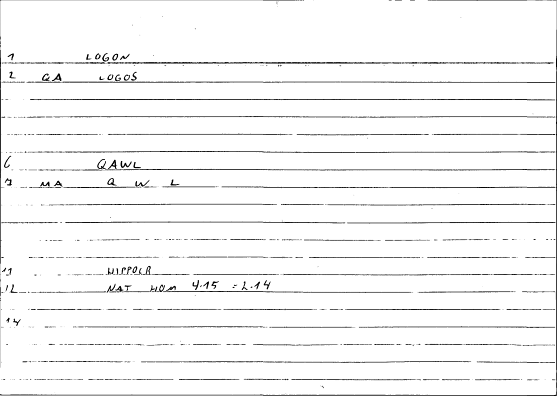 1 LOGON
2 QA LOGOS
6 QAWL
7 MA Q W L
11 HIPPOCR
12 NAT HOM 4.15 = 2.14
14